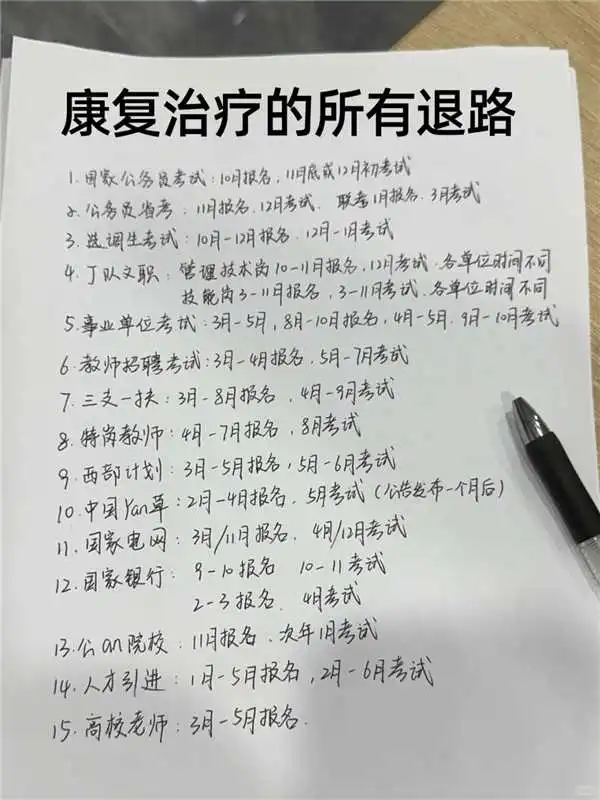 康复治疗的所有退路
1. 国家公务员考试：10月报名，11月底或12月初考试
2. 公务员省考：11月报名，12月考试、联考1月报名、3月考试
3. 选调生考试：10月-12月报名、12月-1月考试
4. 丁队文职：管理技术岗10-11月报名，12月考试、各单位时间不同
技能岗3-11月报名，3-11月考试、各单位时间不同
5. 事业单位考试：3月-5月，8月-10月报名，4月-5月、9月-10月考试
6. 教师招聘考试：3月-4月报名，5月-7月考试
7. 三支一扶：3月-8月报名，4月-9月考试
8. 特岗教师：4月-7月报名，8月考试
9. 西部计划：3月-5月报名，5月-6月考试
10. 中国yan草：2月-4月报名、5月考试（公告发布一个月后）
11. 国家电网：3月/11月报名、4月/12月考试
12. 国家银行：9-10报名 10-11考试
2-3报名、4月考试
13. 公an院校：11月报名、次年1月考试
14. 人才引进：1月-5月报名，2月-6月考试
15. 高校老师：3月-5月报名.